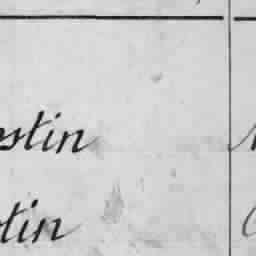 stin
tin